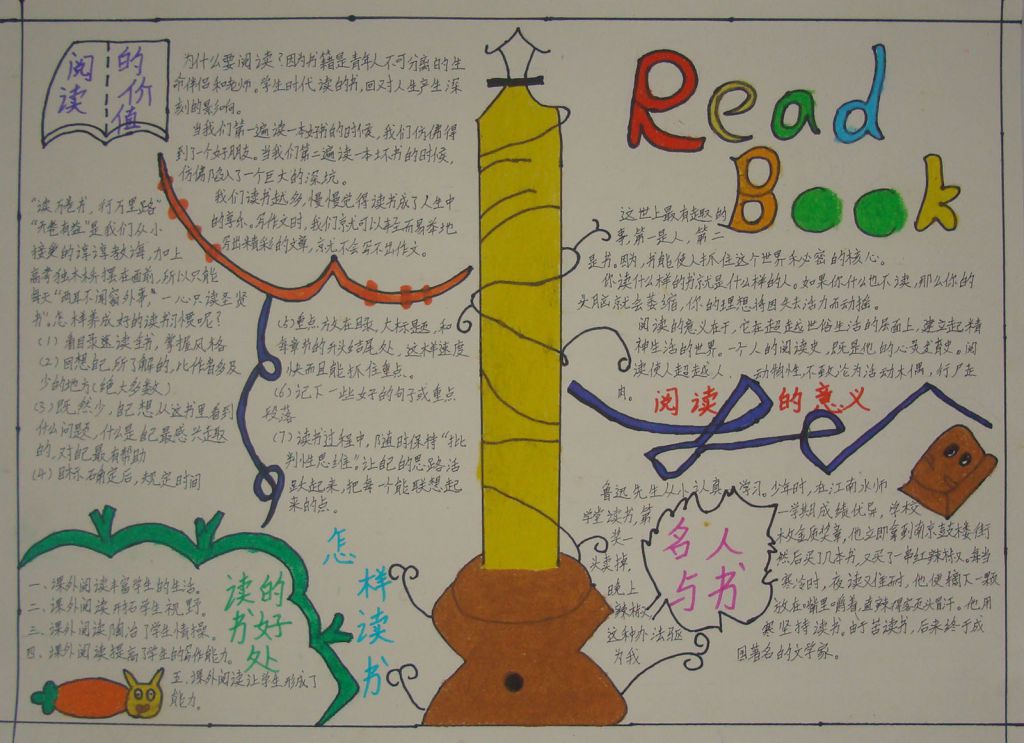 阅读的价值
为什么要阅读？因为书籍是青年人不可分离的生
命伴侣和老师。学生时代读的书，回对人生产生深
刻的影响。
当我们第一遍读一本好书的时候，我们仿佛得
到了一个好朋友。当我们第二遍读一本坏书的时候，
仿佛陷入了一个巨大的深坑。
我们读书越多，慢慢觉得读书成了人生中
的享乐。写作文时，我们就可以轻而易举地
写出精彩的文章，就不会写不出作文。
"读万卷书，行万里路"
"开卷有益"是我们从小
接受的谆谆教诲，加上
高考独木桥摆在面前，所以只能
每天"两耳不闻窗外事，一心只读圣贤
书"。怎样养成好的读书习惯呢？
(1) 看目录速读全书，掌握风格
(2) 回想自己所了解的，比作者多及
少的地方（绝大多数）
(3) 既然少，自己想从这书里看到
什么问题，什么是自己最感兴趣
的，对自己最有帮助
(4) 目标确定后，规定时间
(5) 重点放在目录，大标题，和
每章节的开头结尾处，这样速度
快而且能抓住重点。
(6) 记下一些好的句子或重点
段落
(7) 读书过程中，随时保持"批
判性思维"。让自己的思路活
跃起来，把每个能联想起
来的点。
怎样读书
读书的好处
一、课外阅读丰富学生的生活。
二、课外阅读开拓学生视野。
三、课外阅读陶冶了学生情操。
四、课外阅读提高了学生的写作能力。
五、课外阅读让学生形成了
能力。
Read
Book
这世上最有趣的
事，第一是人，第二
是书。因为，书能使人抓住这个世界和必密的核心。
你读什么样的书就是什么样的人。如果你什么也不读，那么你的
头脑就会萎缩，你的理想将因失去活力而动摇。
阅读的意义在于，它在超越世俗生活的层面上，建立起精
神生活的世界。一个人的阅读史，既是他的心灵发育史。阅
读使人超越人、动物性，不致沦为活动木偶，行尸走
肉。
阅读的意义
名人与书
鲁迅先生从小认真学习。少年时，在江南水师
学堂读书，第一学期成绩优异，学校
奖章，他立即拿到南京鼓楼街
头卖掉，然后买了几本书，又买了一串红辣椒。每当
晚上寒冷时，夜读难耐，他便摘下一颗
辣椒放在嘴里嚼着，直辣得额头冒汗。他用
这种办法驱寒坚持读书。由于苦读书，后来终于成
为我国著名的文学家。